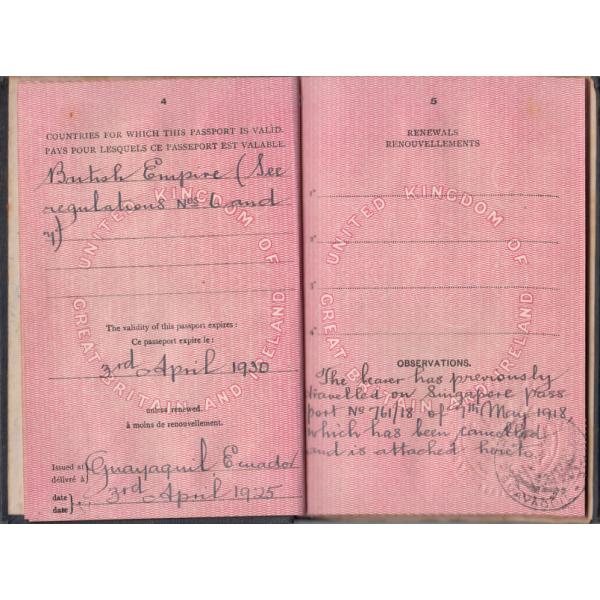 4
COUNTRIES FOR WHICH THIS PASSPORT IS VALID.
PAYS POUR LESQUELS CE PASSEPORT EST VALABLE
British Empire (See
regulations Nos 6 and
7)
UNITED KINGDOM OF
GREAT BRITAIN AND IRELAND
The validity of this passport expires:
Ce passeport expire le:
3rd April 1930
unless renewed.
à moins de renouvellement.
Issued at
délivré à
Guayaquil, Ecuador
date
date
3rd April 1925
5
RENEWALS
RENOUVELLEMENTS
1°
2°
3°
4°
UNITED KINGDOM OF
GREAT BRITAIN AND IRELAND
OBSERVATIONS.
The bearer has previously
travelled on Singapore pass
port No 761/18 of 7th May 1918,
which has been cancelled
and is attached hereto.